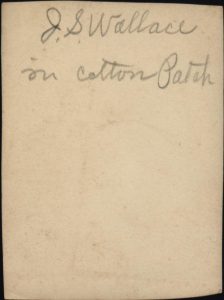 J. S. Wallace
in cotton Patch